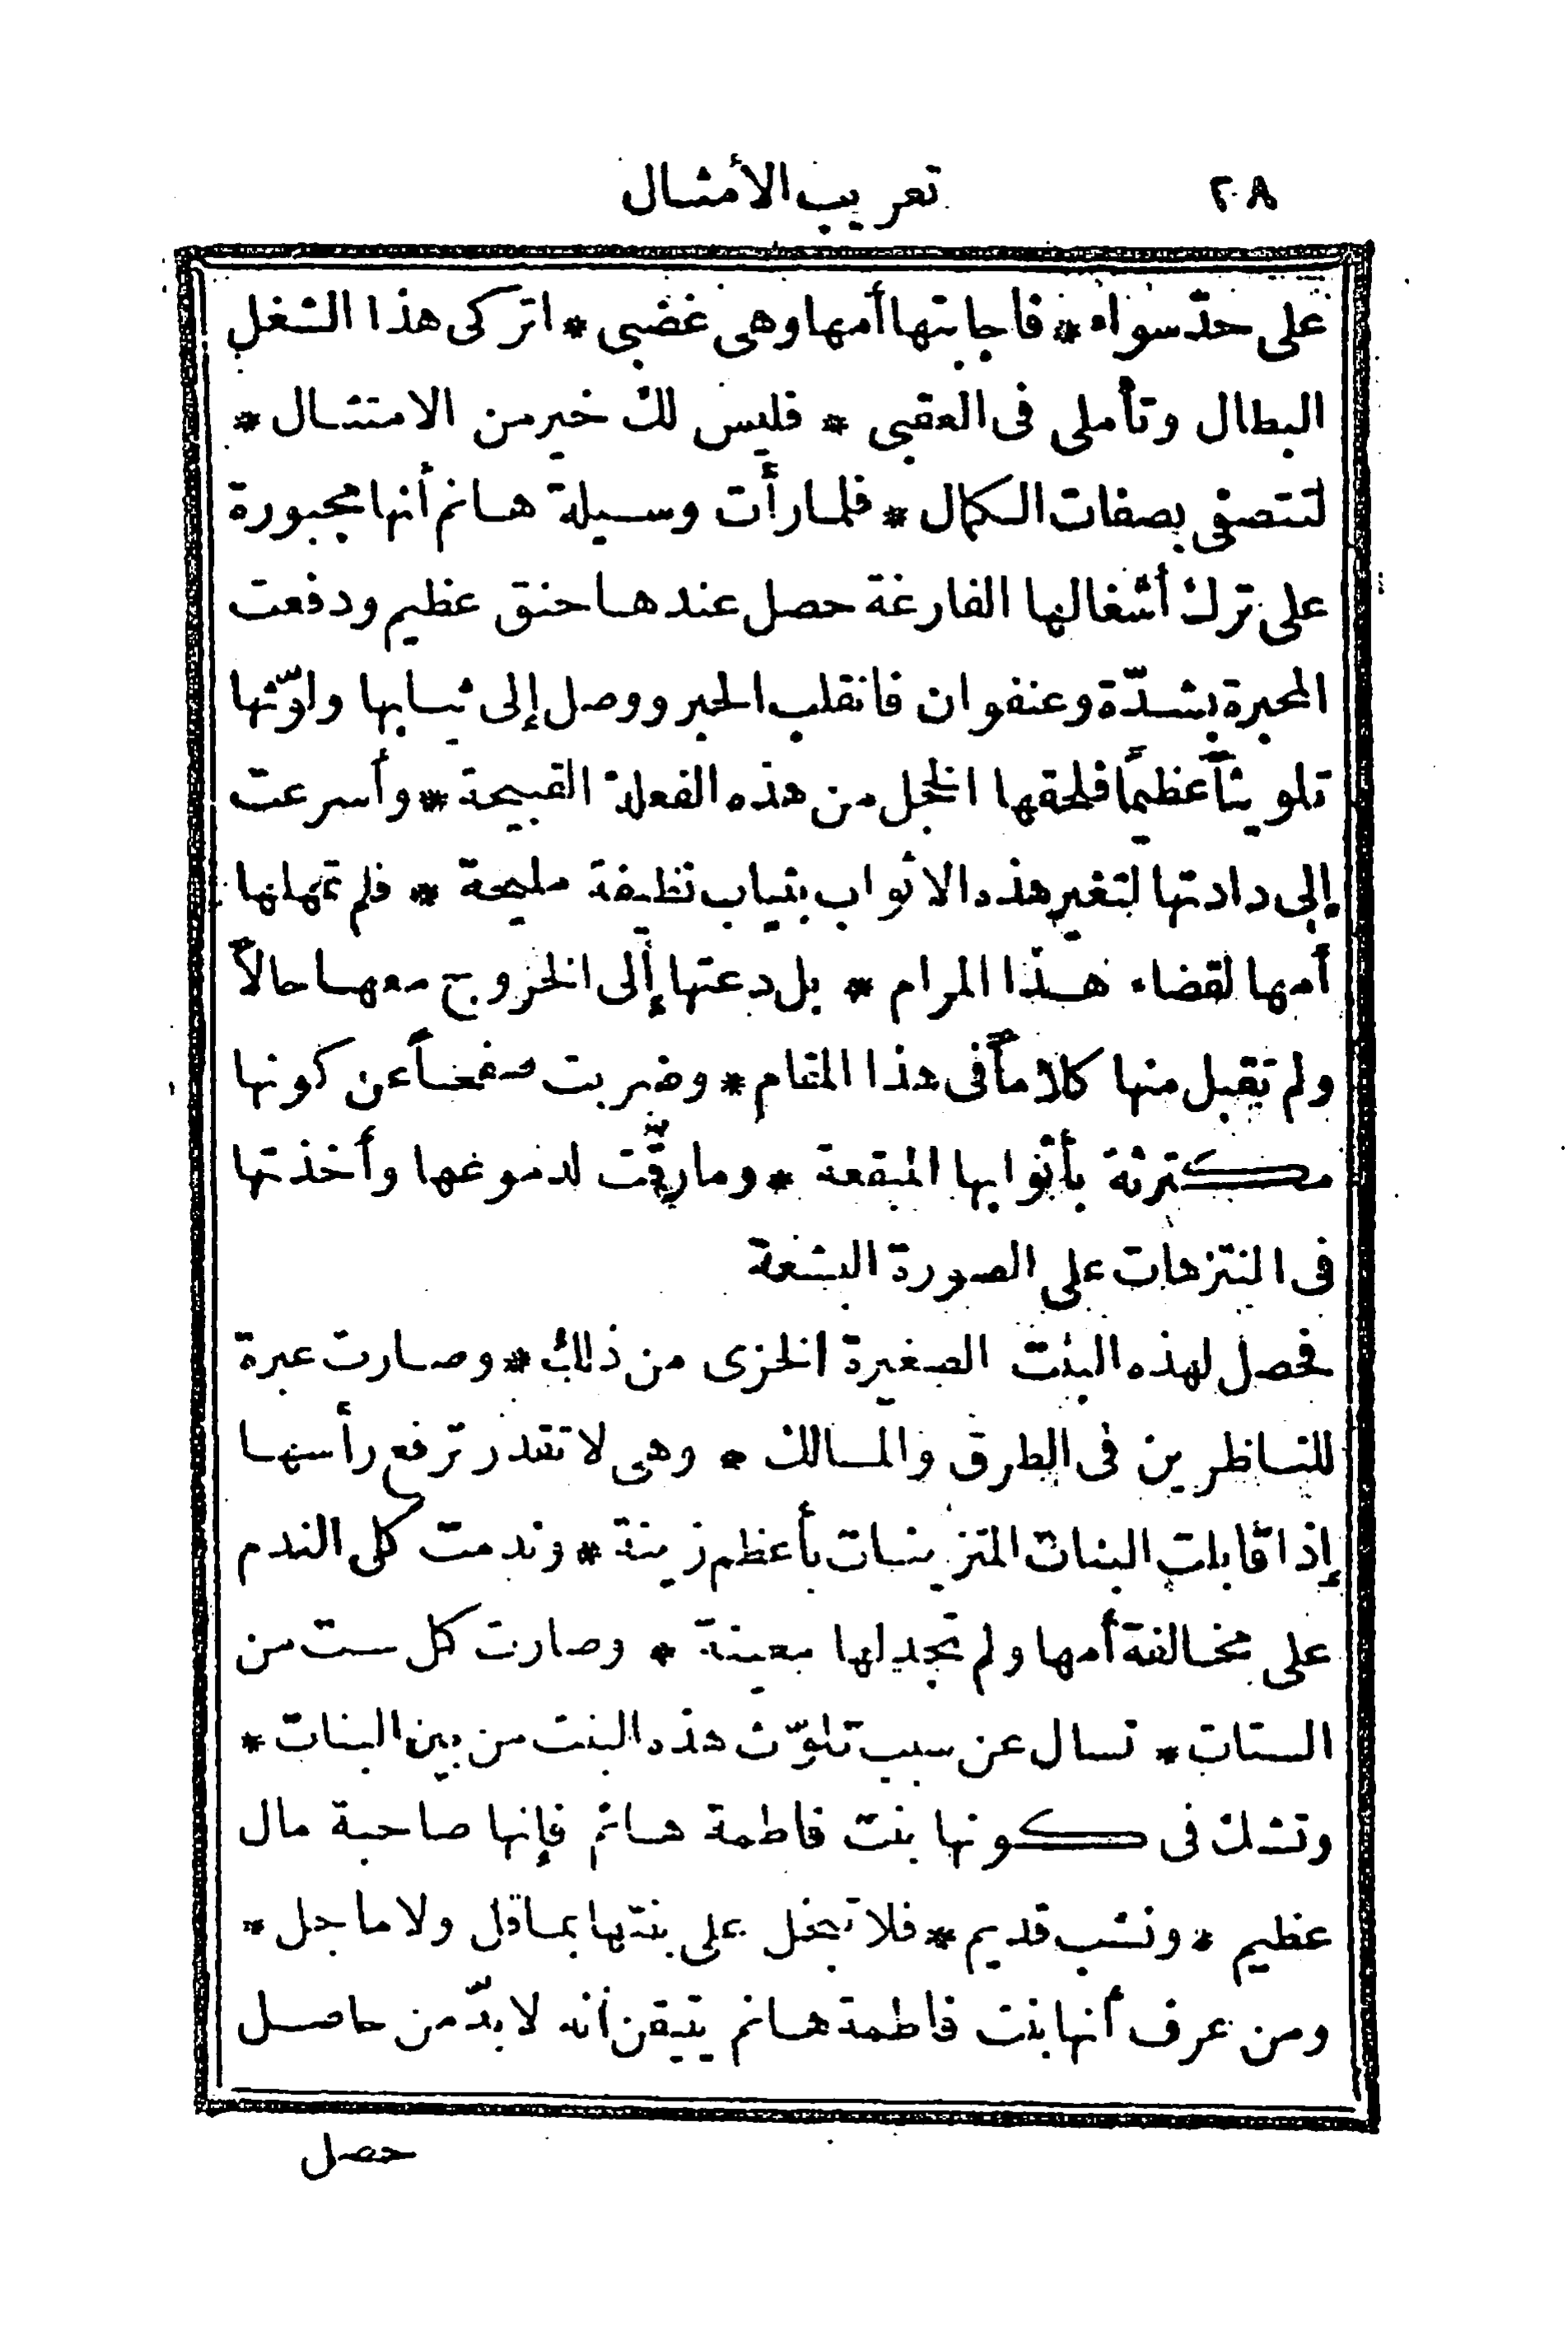 ٢٠٨ تعريب الأمثال
على حدّ سواء * فاجابتها أمها وهى غضبى * اتركى هذا الشغل
البطال وتأملى فى العقبى * فليس لك خير من الامتثال *
لتتصفى بصفات الكمال * فلما رأت وسيلة هانم أنها مجبورة
على ترك أشغالها الفارغة حصل عندها حنق عظيم ودفعت
المحبرة بشدّة وعنفوان فانقلب الحبر ووصل إلى ثيابها ولوّثها
تلويثاً عظيماً فلحقها الخجل من هذه الفعلة القبيحة * وأسرعت
إلى دادتها لتغير هذه الاثواب بثياب نظيفة مليحة * فلم تمهلها
أمها لقضاء هذا المرام * بل دعتها إلى الخروج معها حالاً
ولم تقبل منها كلاماً فى هذا المقام * وضربت صفحاً عن كونها
مكترثة بأثوابها المبقعة * وما رقّت لدموعها وأخذتها
فى المنتزهات على الصورة البشعة
فحصل لهذه البنت الصغيرة الخزى من ذلك * وصارت عبرة
للناظرين فى الطرق والمسالك * وهى لا تقدر ترفع رأسها
إذا قابلت البنات المتزينات بأعظم زينة * وندمت كل الندم
على مخالفة أمها ولم تجد لها معينة * وصارت كل ست من
الستات * تسال عن سبب تلوّث هذه البنت من بين البنات *
وتشك فى كونها بنت فاطمة هانم فإنها صاحبة مال
عظيم * ونشب قديم * فلا تبخل على بنتها بما قل ولا ما جل *
ومن عرف أنها بنت فاطمة هانم يتيقن أنه لا بدّ من حاصل
حصل